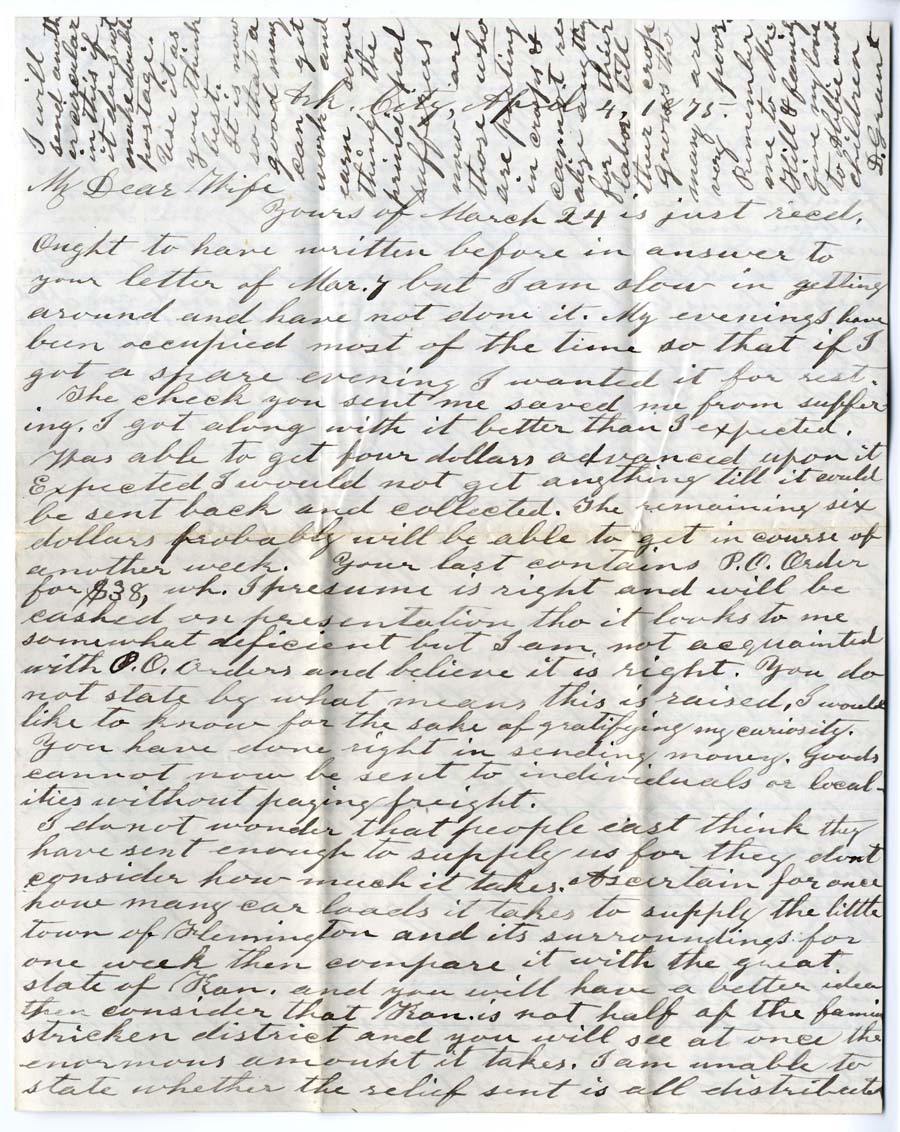 Ark. City, April 4, 1875.
My Dear Wife
Yours of March 24 is just recd.
Ought to have written before in answer to
your letter of Mar. 7 but I am slow in getting
around and have not done it. My evenings have
been occupied most of the time so that if I
got a spare evening I wanted it for rest.
The check you sent me saved me from suffer-
ing. I got along with it better than I expected.
Was able to get four dollars advanced upon it
Expected I would not get anything till it could
be sent back and collected. The remaining six
dollars probably will be able to get in course of
another week. Your last contains P.O. Order
for $38, wh. I presume is right and will be
cashed on presentation tho it looks to me
somewhat deficient but I am not acquainted
with P.O. Orders and believe it is right. You do
not state by what means this is raised, I would
like to know for the sake of gratifying my curiosity.
You have done right in sending money. Goods
cannot now be sent to individuals or local-
ities without paying freight.
I do not wonder that people east think they
have sent enough to supply us for they dont
consider how much it takes. Ascertain for once
how many car loads it takes to supply the little
town of Flemington and its surroundings for
one week then compare it with the great
state of Kan. and you will have a better idea
then consider that Kan. is not half of the famin
stricken district and you will see at once the
enormous amount it takes. I am unable to
state whether the relief sent is all distributed
I will
send anoth
er circular
in this if
it does not
make double
postage.
Use it as
you think
best.
It is now
so that a
good many
can get
work and
earn some
thing the
principal
sufferers
now are
those who
are putting
in crops &
cannot re
alize anything
for their
labor till
their crop
grows too
many are
very poor.
Remember
me to Mrs.
Hill & family
Give my love
to Abbie and
children